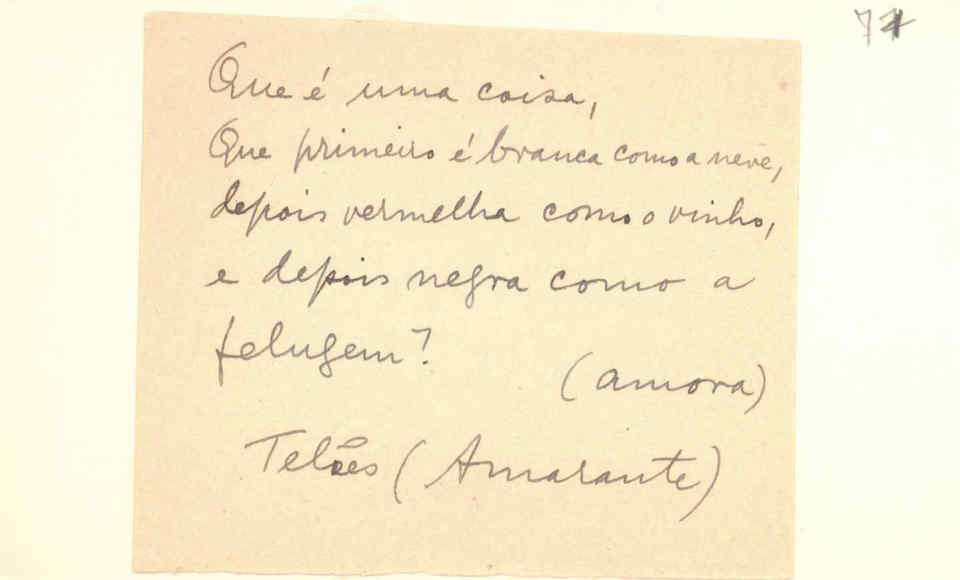 77
Que é uma coisa,
Que primeiro é branca como a neve,
depois vermelha como o vinho,
e depois negra como a
felugem?
(amora)
Telões (Amarante)